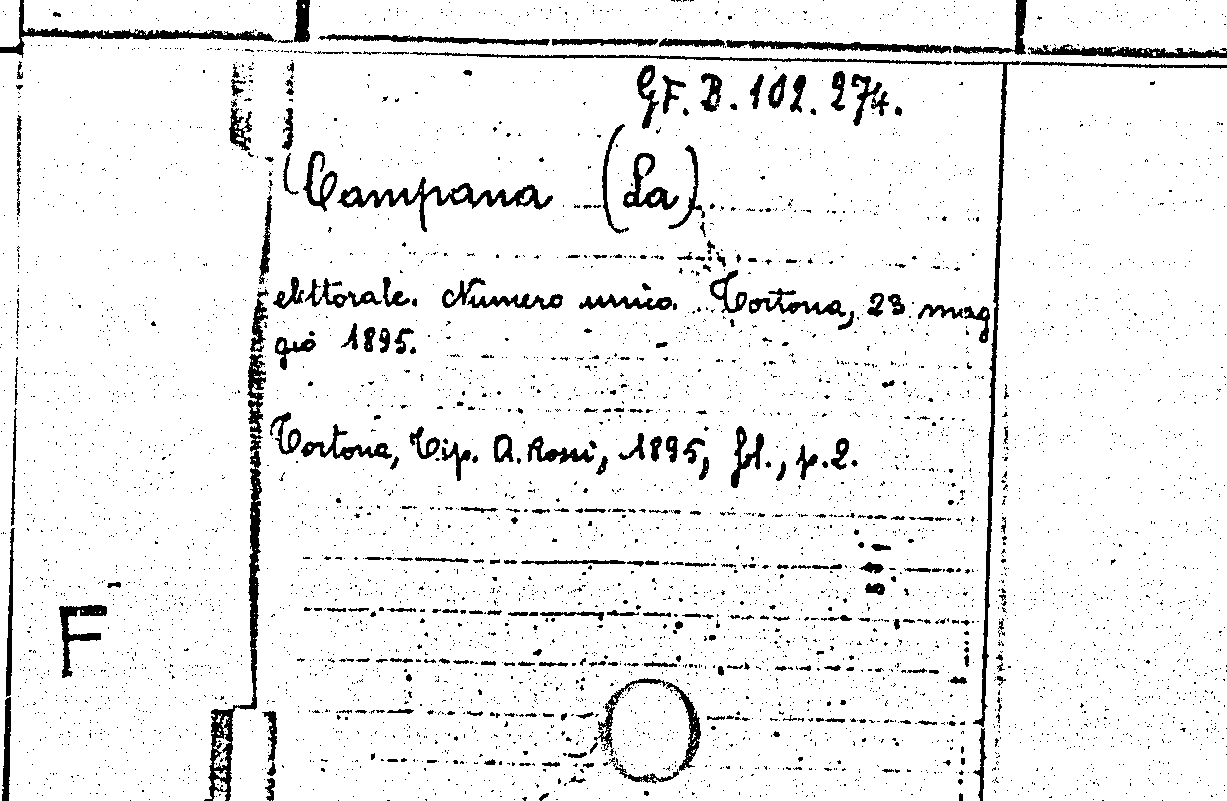 GF. B. 102. 274.
Campana (La)
elettorale. Numero unico. Tortona, 23 mag
gio 1895.
Tortona, Tip. A. Rossi, 1895, fol., p. 2.
F